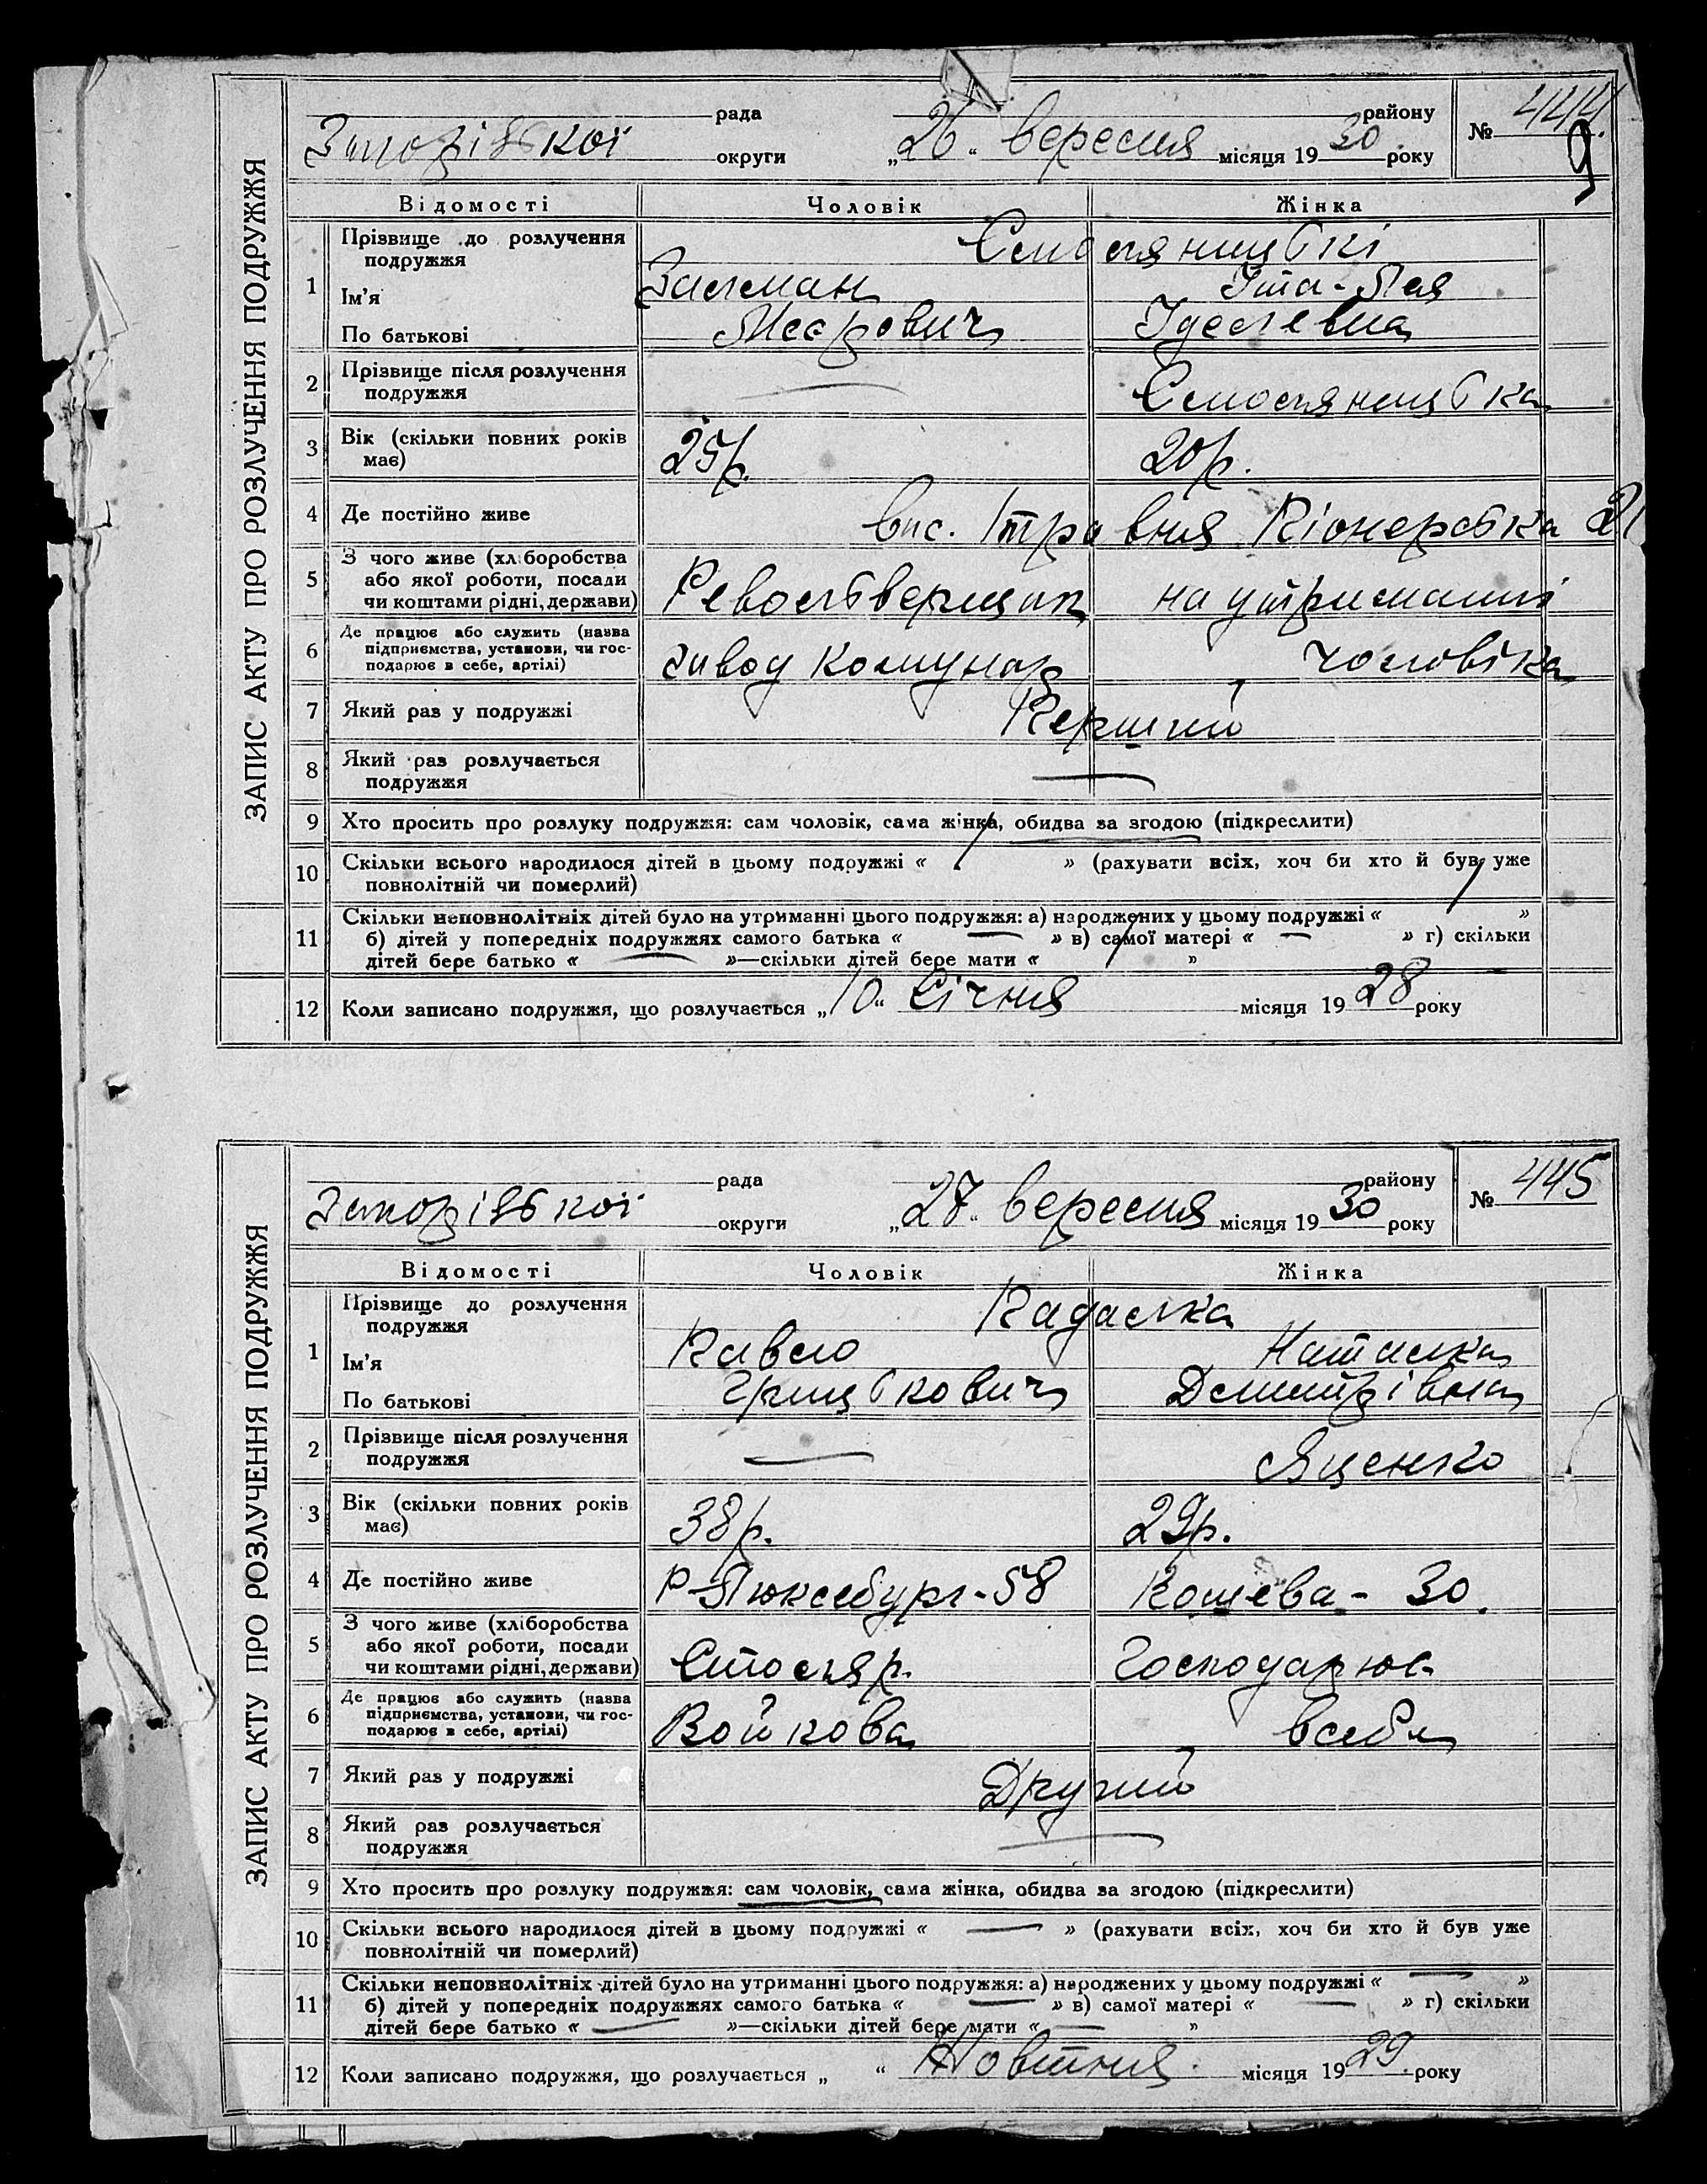 ЗАПИС АКТУ ПРО РОЗЛУЧЕННЯ ПОДРУЖЖЯ
рада району
Запорізької округи „26“ вересня місяця 1930 року
№ 444
9
Відомості Чоловік Жінка
1 Прізвище до розлучення
подружжя
Ім'я Залман Іта-Лея
По батькові Меєрович
2 Прізвище після розлучення
подружжя —
3 Вік (скільки повних років
має) 25 р. 20 р.
4 Де постійно живе вис. 1 травня Піонерська 21
5 З чого живе (хліборобства
або якої роботи, посади
чи коштами рідні, держави) Револьверщик на утриманні
6 Де працює або служить (назва
підприємства, установи, чи гос-
подарює в себе, артілі) завод Комунар чоловіка
7 Який раз у подружжі Перший
8 Який раз розлучається
подружжя —
9 Хто просить про розлуку подружжя: сам чоловік, сама жінка, обидва за згодою (підкреслити)
10 Скільки всього народилося дітей в цьому подружжі « 1 » (рахувати всіх, хоч би хто й був уже
повнолітній чи померлий)
11 Скільки неповнолітніх дітей було на утриманні цього подружжя: а) народжених у цьому подружжі « 1 »
б) дітей у попередніх подружжях самого батька « — » в) самої матері « — » г) скільки
дітей бере батько « — »—скільки дітей бере мати « 1 »
12 Коли записано подружжя, що розлучається „10“ Січня місяця 1928 року
ЗАПИС АКТУ ПРО РОЗЛУЧЕННЯ ПОДРУЖЖЯ
рада району
Запорізької округи „27“ вересня місяця 1930 року
№ 445
Відомості Чоловік Жінка
1 Прізвище до розлучення Падалка
подружжя
Ім'я Павло Наталка
По батькові Грицькович Демитрівна
2 Прізвище після розлучення
подружжя — Яценко
3 Вік (скільки повних років
має) 38 р. 29 р.
4 Де постійно живе Р-Люксембург-58 Кошева - 30
5 З чого живе (хліборобства
або якої роботи, посади
чи коштами рідні, держави) Столяр. Господарює
6 Де працює або служить (назва
підприємства, установи, чи гос-
подарює в себе, артілі) Войкова в себе
7 Який раз у подружжі Другий
8 Який раз розлучається
подружжя —
9 Хто просить про розлуку подружжя: сам чоловік, сама жінка, обидва за згодою (підкреслити)
10 Скільки всього народилося дітей в цьому подружжі « — » (рахувати всіх, хоч би хто й був уже
повнолітній чи померлий)
11 Скільки неповнолітніх дітей було на утриманні цього подружжя: а) народжених у цьому подружжі « — »
б) дітей у попередніх подружжях самого батька « — » в) самої матері « — » г) скільки
дітей бере батько « — »—скільки дітей бере мати « — »
12 Коли записано подружжя, що розлучається „ “ Жовтня місяця 1929 року